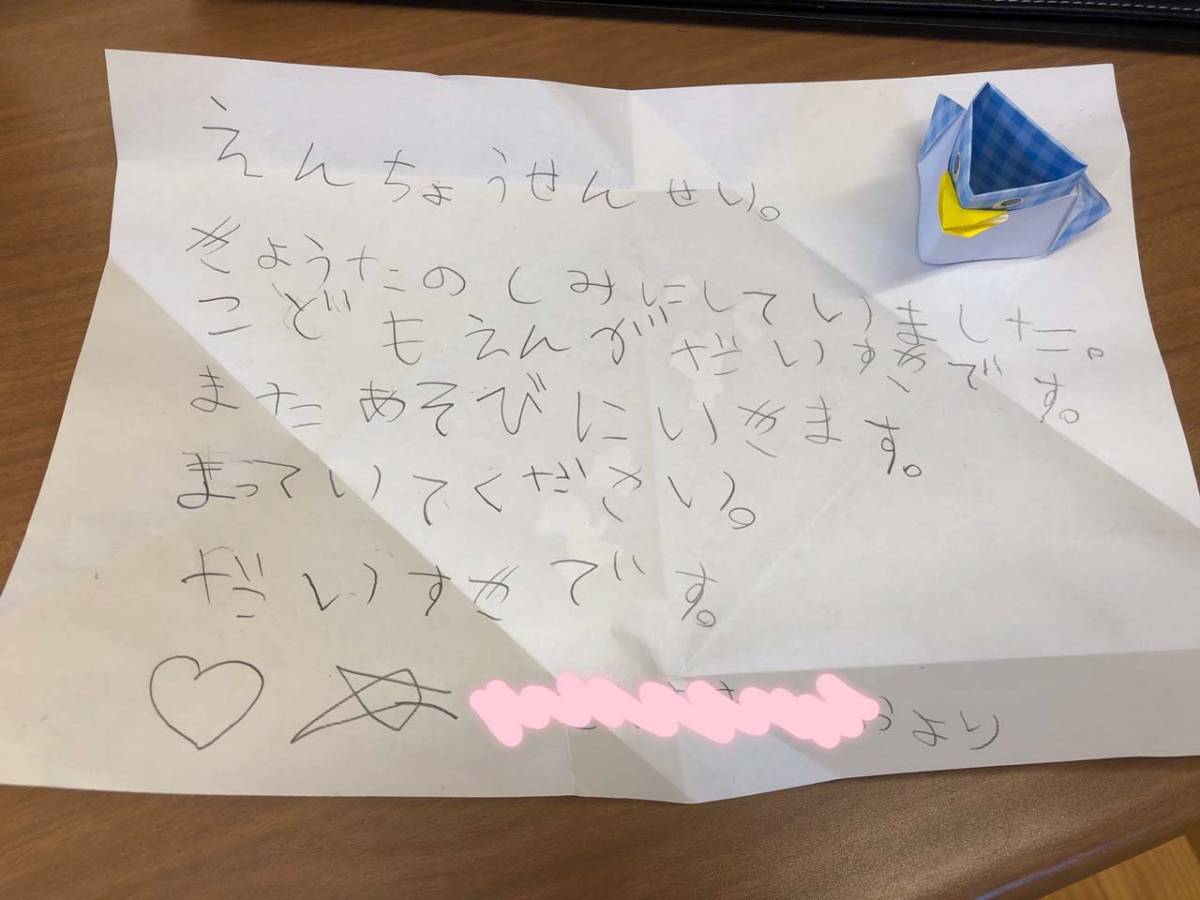 えんちょうせんせい。
きょうたのしみにしていました。
こどもえんがだいすきです。
またあそびにいきます。
まっていてください。
だいすきです。
より